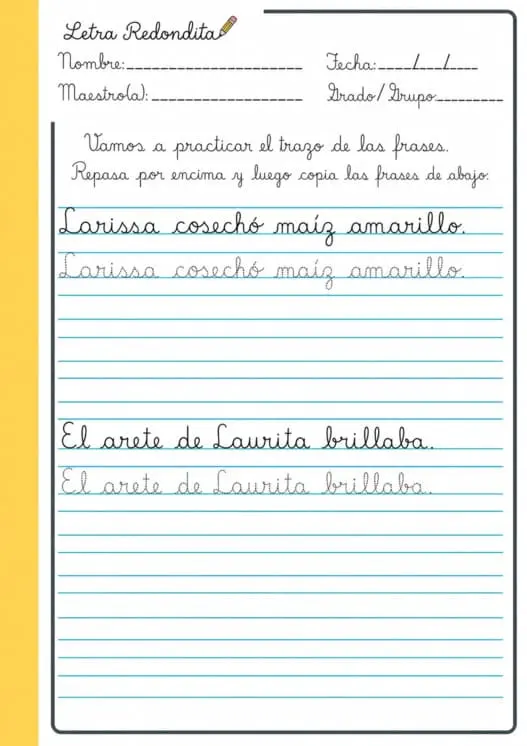 Letra Redondita
Nombre:____________________ Fecha:____/___/____
Maestro(a):__________________ Grado/Grupo:_________
Vamos a practicar el trazo de las frases.
Repasa por encima y luego copia las frases de abajo:
Larissa cosechó maíz amarillo.
Larissa cosechó maíz amarillo.
El arete de Laurita brillaba.
El arete de Laurita brillaba.